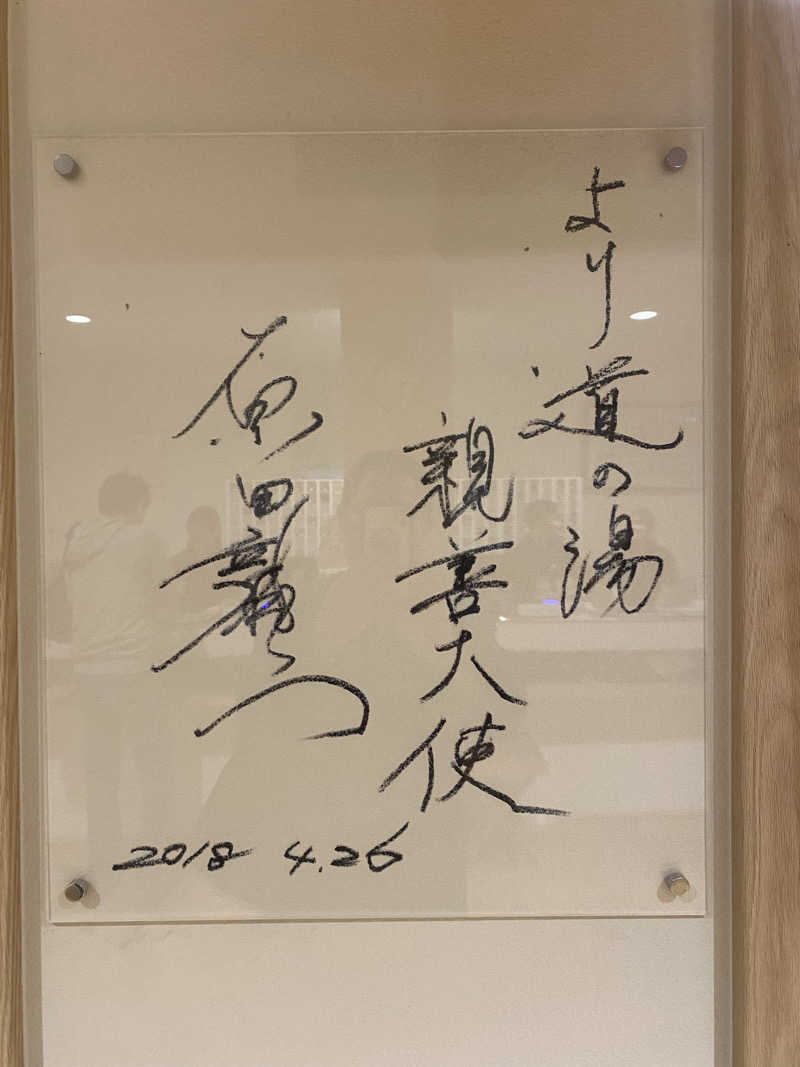 より道の湯
親善大使
原田龍二
2018 4.26